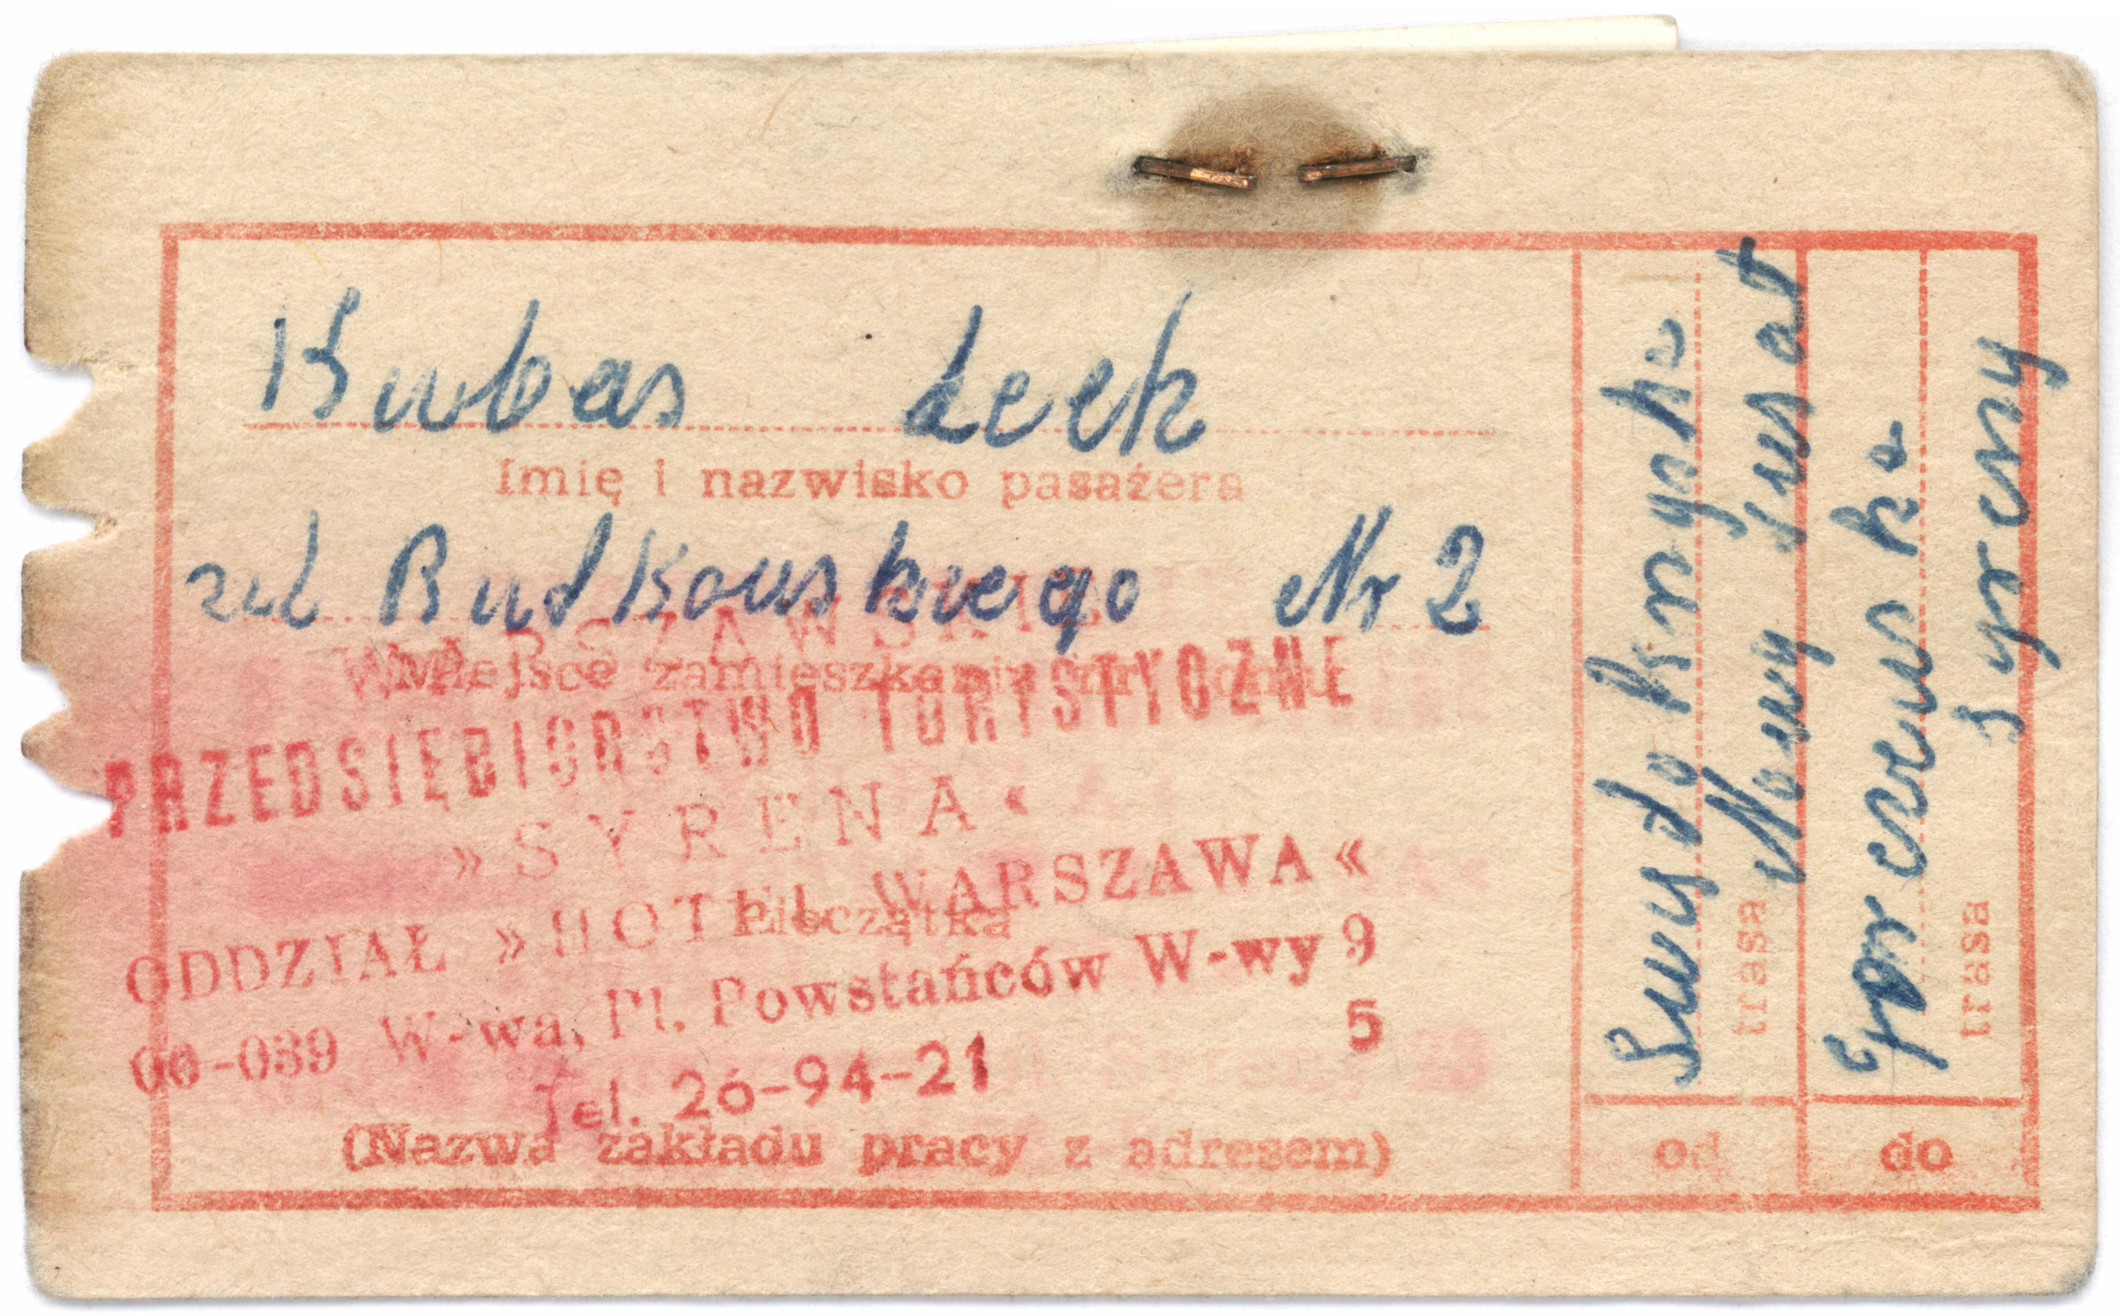 Kubas Lech
Imię i nazwisko pasażera
ul Rudkowskiego Nr 2
WARSZAWSKIE
Miejsce zamieszkania nr domu
PRZEDSIĘBIORSTWO TURYSTYCZNE
»SYRENA«
ODDZIAŁ »HOTEL WARSZAWA«
Pieczątka
00-039 W-wa, Pl. Powstańców W-wy 9
5
Tel. 26-94-21
(Nazwa zakładu pracy z adresem)
Nowy Świat
trasa
od
Syreny
trasa
do